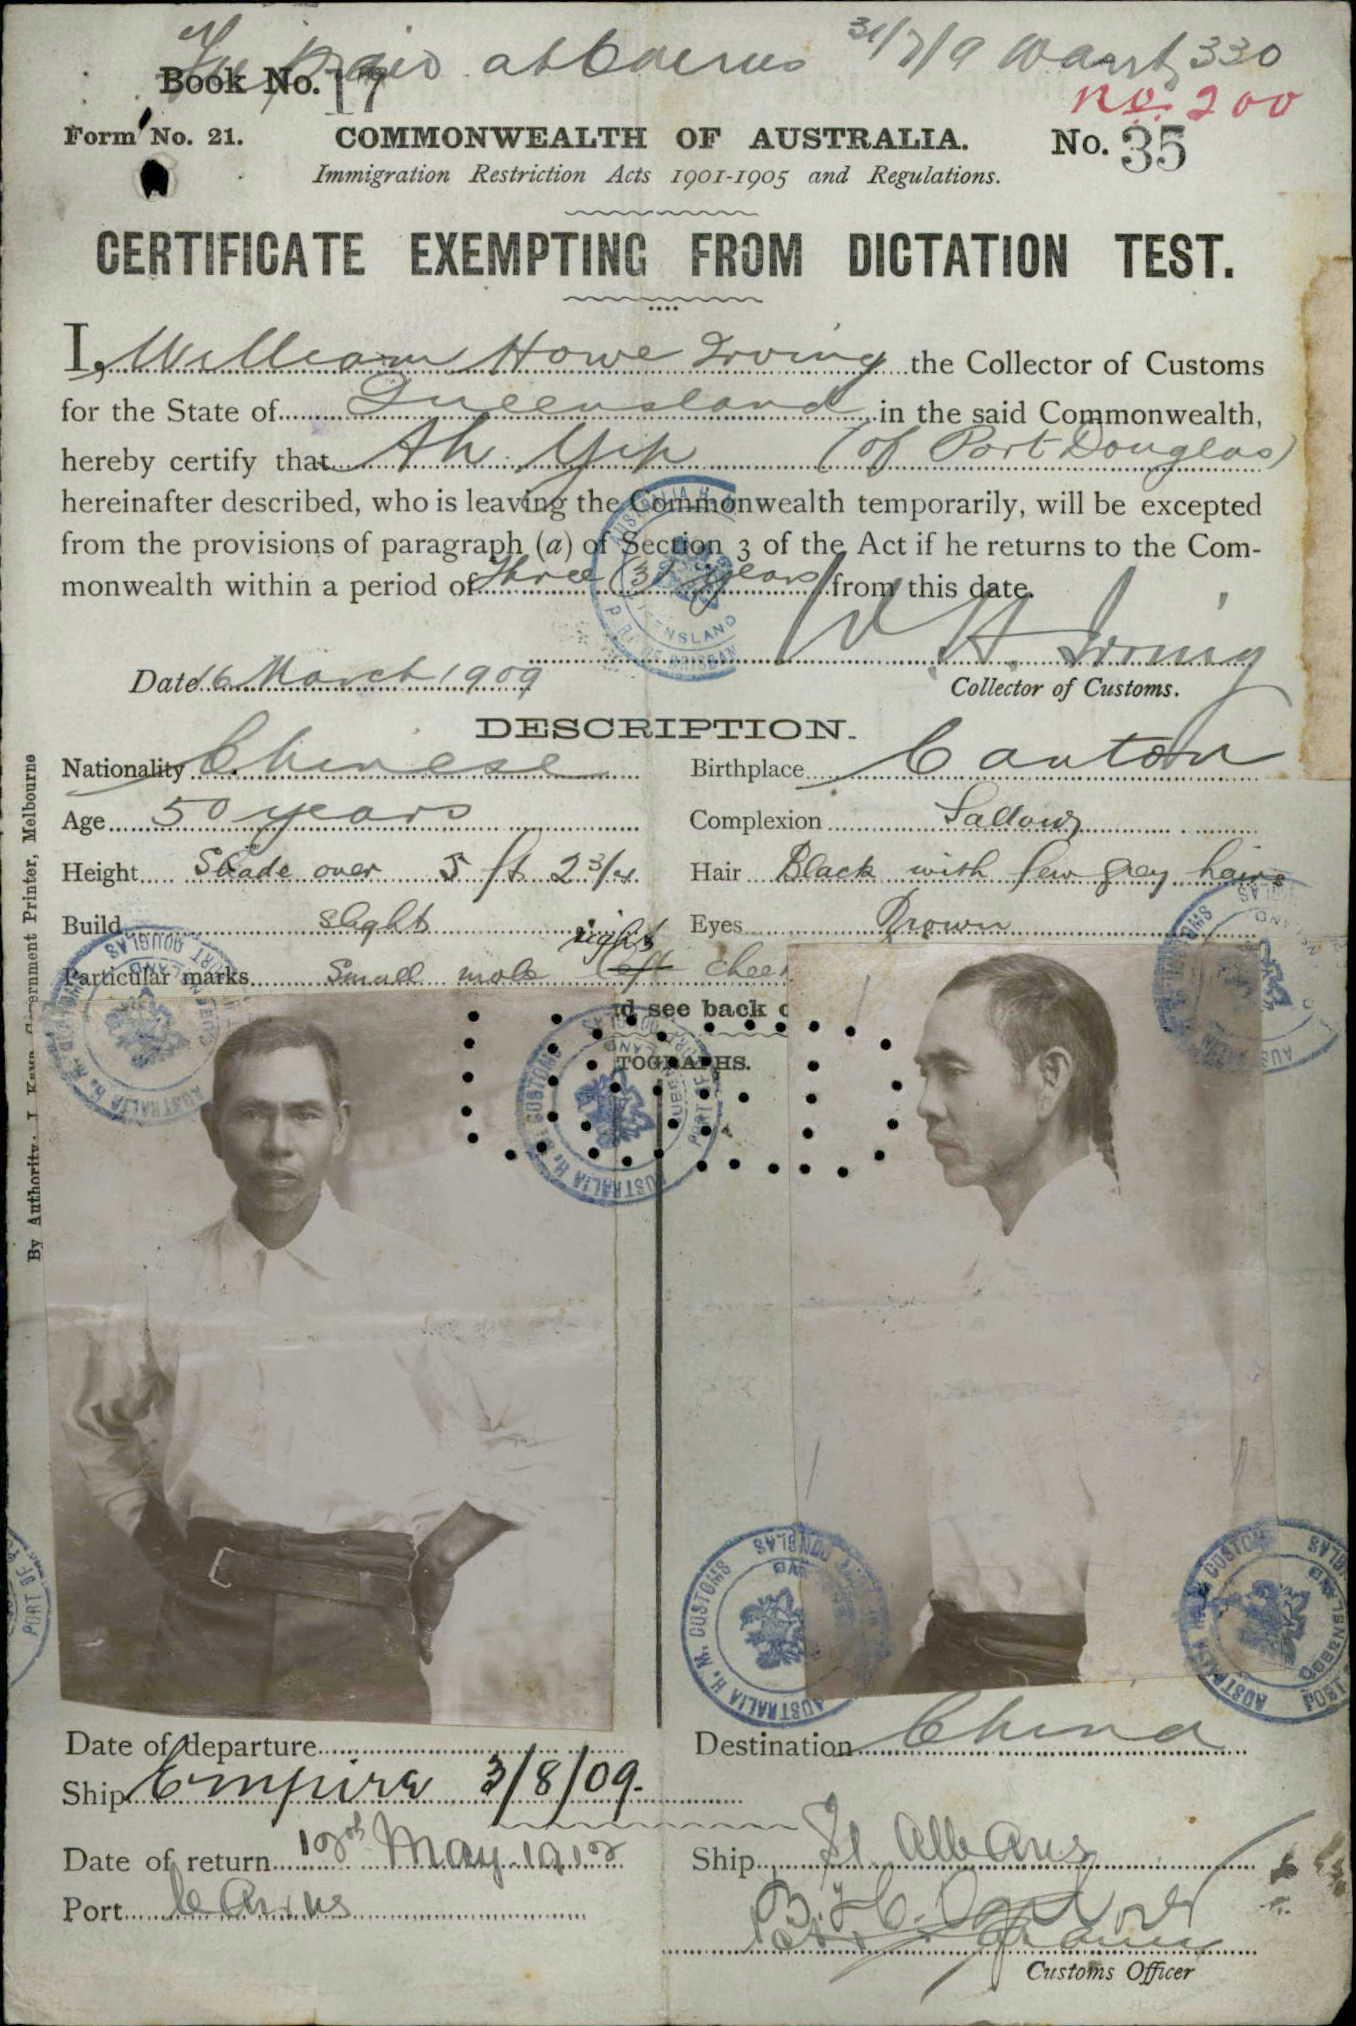 Fee paid at Cairns 31/7/9 330
Book No. 17
No. 200
Form No. 21. COMMONWEALTH OF AUSTRALIA. No. 35
Immigration Restriction Acts 1901-1905 and Regulations.
CERTIFICATE EXEMPTING FROM DICTATION TEST.
I, William Howe Irving the Collector of Customs
for the State of Queensland in the said Commonwealth,
hereby certify that Ah Yip (of Port Douglas)
hereinafter described, who is leaving the Commonwealth temporarily, will be excepted
from the provisions of paragraph (a) of Section 3 of the Act if he returns to the Com-
monwealth within a period of three (3) years from this date.
W. H. Irving
Date 16 March 1909
Collector of Customs.
DESCRIPTION.
Nationality Chinese Birthplace Canton
Age 50 years Complexion Sallow
Height Shade over 5 ft 2 3/4 Hair Black with few grey hairs
Build slight Eyes Brown
right
Particular marks Small mole left cheek
d see back o
TOGRAPHS.
By Authority: J. Kemp, Government Printer, Melbourne
AUSTRALIA H. M. CUSTOMS
QUEENSLAND
PORT OF BRISBANE
AUSTRALIA H. M. CUSTOMS
QUEENSLAND
PORT DOUGLAS
Date of departure Destination China
Ship Empire 3/8/09.
Date of return 12th May 1912 Ship St Albans
Port Cairns
Customs Officer